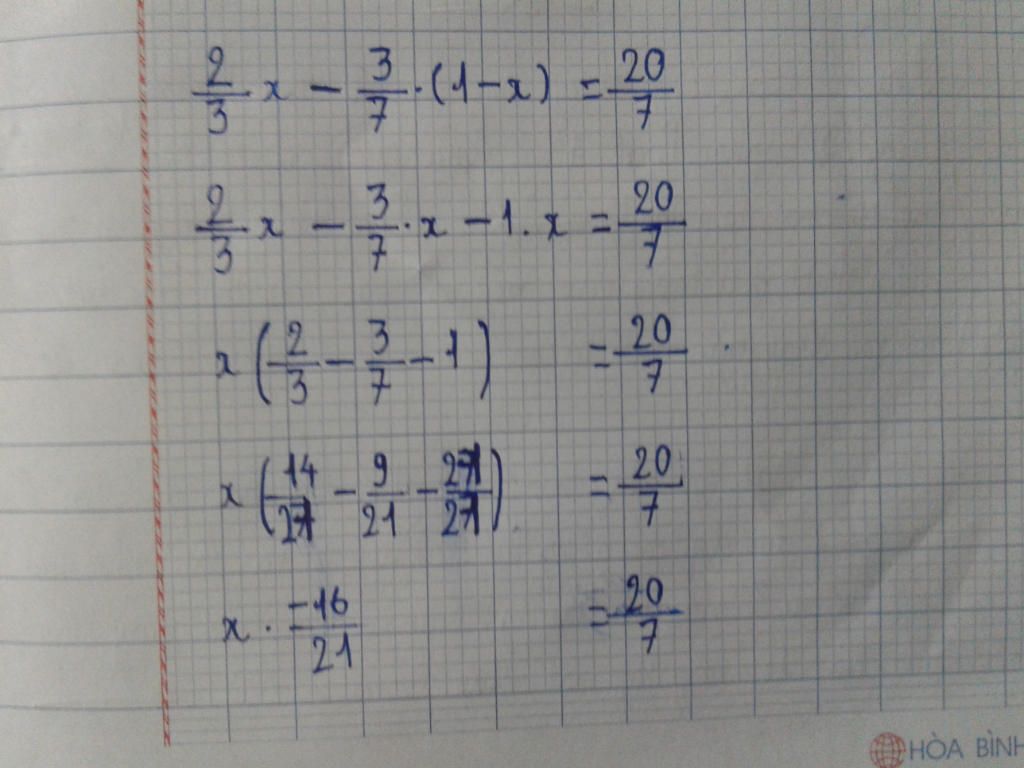 2/3 x - 3/7 · (1 - x) = 20/7
2/3 x - 3/7 · x - 1 . x = 20/7
x (2/3 - 3/7 - 1) = 20/7
x (14/21 - 9/21 - 21/21) = 20/7
x · -16/21 = 20/7
HÒA BÌNH